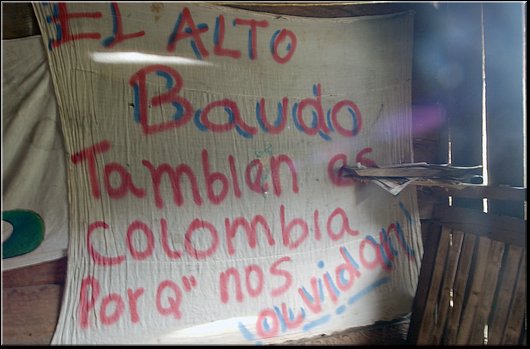 EL ALTO
Baudo
Tambien es
COLOMBIA
PorQ" nos
olvidan!